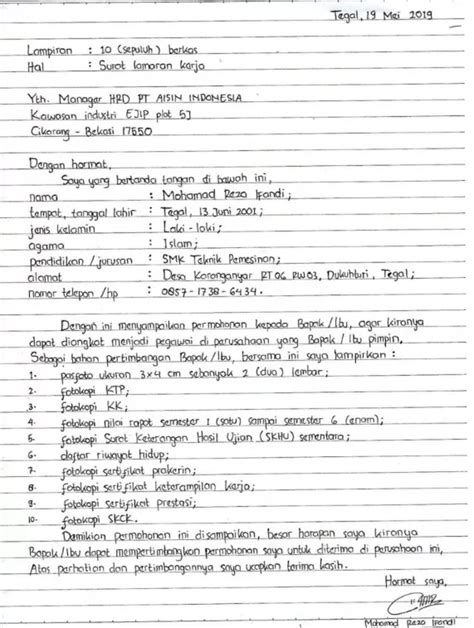 Tegal, 19 Mei 2019
Lampiran : 10 (sepuluh) berkas
Hal : Surat lamaran kerja
Yth. Manager HRD PT AISIN INDONESIA
Kawasan industri EJIP plot 5J
Cikarang - Bekasi 17550
Dengan hormat,
Saya yang bertanda tangan di bawah ini,
nama : Mohamad Reza Irandi;
tempat, tanggal lahir : Tegal, 13 Juni 2001;
jenis kelamin : Laki - laki;
agama : Islam;
pendidikan / jurusan : SMK Teknik Pemesinan;
alamat : Desa Karanganyar RT 06 RW 03, Dukuhturi, Tegal;
nomor telepon / hp : 0857-1738-6434.
Dengan ini menyampaikan permohonan kepada Bapak / Ibu, agar kiranya
dapat diangkat menjadi pegawai di perusahaan yang Bapak / Ibu pimpin.
Sebagai bahan pertimbangan Bapak / Ibu, bersama ini saya lampirkan :
1. pasfoto ukuran 3x4 cm sebanyak 2 (dua) lembar;
2. fotokopi KTP;
3. fotokopi KK;
4. fotokopi nilai rapot semester 1 (satu) sampai semester 6 (enam);
5. fotokopi Surat Keterangan Hasil Ujian (SKHU) sementara;
6. daftar riwayat hidup;
7. fotokopi sertifikat prakerin;
8. fotokopi sertifikat keterampilan kerja;
9. fotokopi sertifikat prestasi;
10. fotokopi SKCK.
Demikian permohonan ini disampaikan, besar harapan saya kiranya
Bapak / Ibu dapat mempertimbangkan permohonan saya untuk diterima di perusahaan ini,
Atas perhatian dan pertimbangannya saya ucapkan terima kasih.
Hormat saya,
Mohamad Reza Irandi